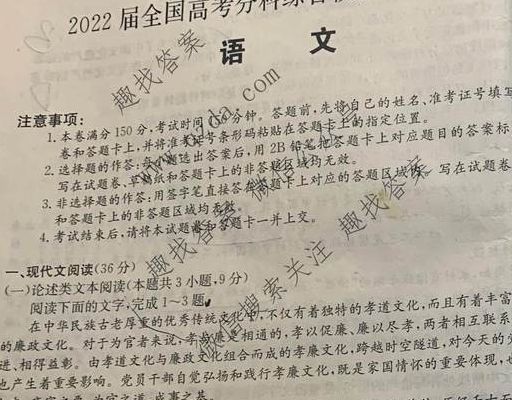 2022 届全国高考分科综合
语 文
注意事项:
1. 本卷满分 150 分,考试时间 150 分钟。答题前,先将自己的姓名、准考证号填写
卷和答题卡上,并将准考证号条形码粘贴在答题卡上的指定位置。
2. 选择题的作答:每小题选出答案后,用 2B 铅笔把答题卡上对应题目的答案标
写在试题卷、草稿纸和答题卡上的非答题区域均无效。
3. 非选择题的作答:用签字笔直接答在答题卡上对应的答题区域内。写在试题卷
和答题卡上的非答题区域均无效。
4. 考试结束后,请将本试题卷和答题卡一并上交。
一、现代文阅读(36 分)
(一)论述类文本阅读(本题共 3 小题,9 分)
阅读下面的文字,完成 1~3 题。
在中华民族古老厚重的优秀传统文化中,不仅有着独特的孝道文化,而且有着丰富
的廉政文化。对于为官者来说,孝与廉是相通的,孝以促廉、廉以尽孝,两者相互联系
进、相得益彰。由孝道文化与廉政文化组合而成的孝廉文化,跨越时空隧道,对今天的
也产生着重要影响。党员干部自觉弘扬和践行孝廉文化,既是家国情怀的重要体现,也
为官之道、成事之基。
趣找答案
com
微信搜索关注 趣找答案